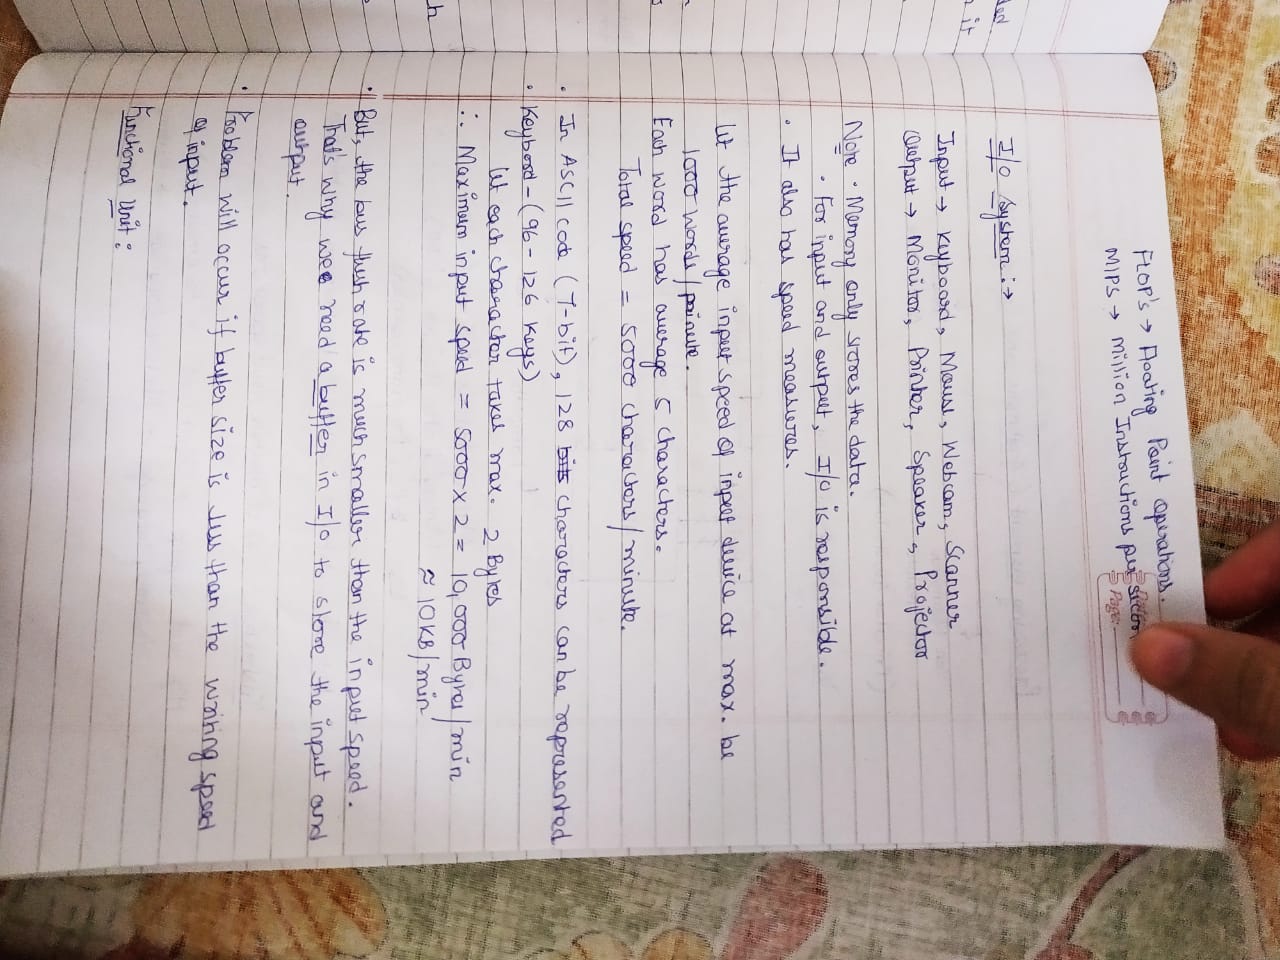 Flop's → Floating Point operations.
MIPS → Million Instructions per secon
Page:
I/O System :→
Input → Keyboard, Mouse, Webcam, Scanner
Output → Monitor, Printer, Speaker, Projector
Note • Memory only stores the data.
• For input and output, I/O is responsible.
• It also has speed measures.
let the average input speed of input device at max. be
1000 words/minute.
Each word has average 5 characters.
Total speed = 5000 characters/minute.
• In ASCII code (7-bit), 128 bits characters can be represented
• Keyboard - (96-126 keys)
let each character takes max. 2 Bytes
∴ Maximum input speed = 5000 x 2 = 10,000 Bytes/min
≈ 10KB/min
• But, the bus flush rate is much smaller than the input speed.
That's why we need a buffer in I/O to store the input and
output.
• Problem will occur if buffer size is less than the writing speed
of input.
Functional Unit :